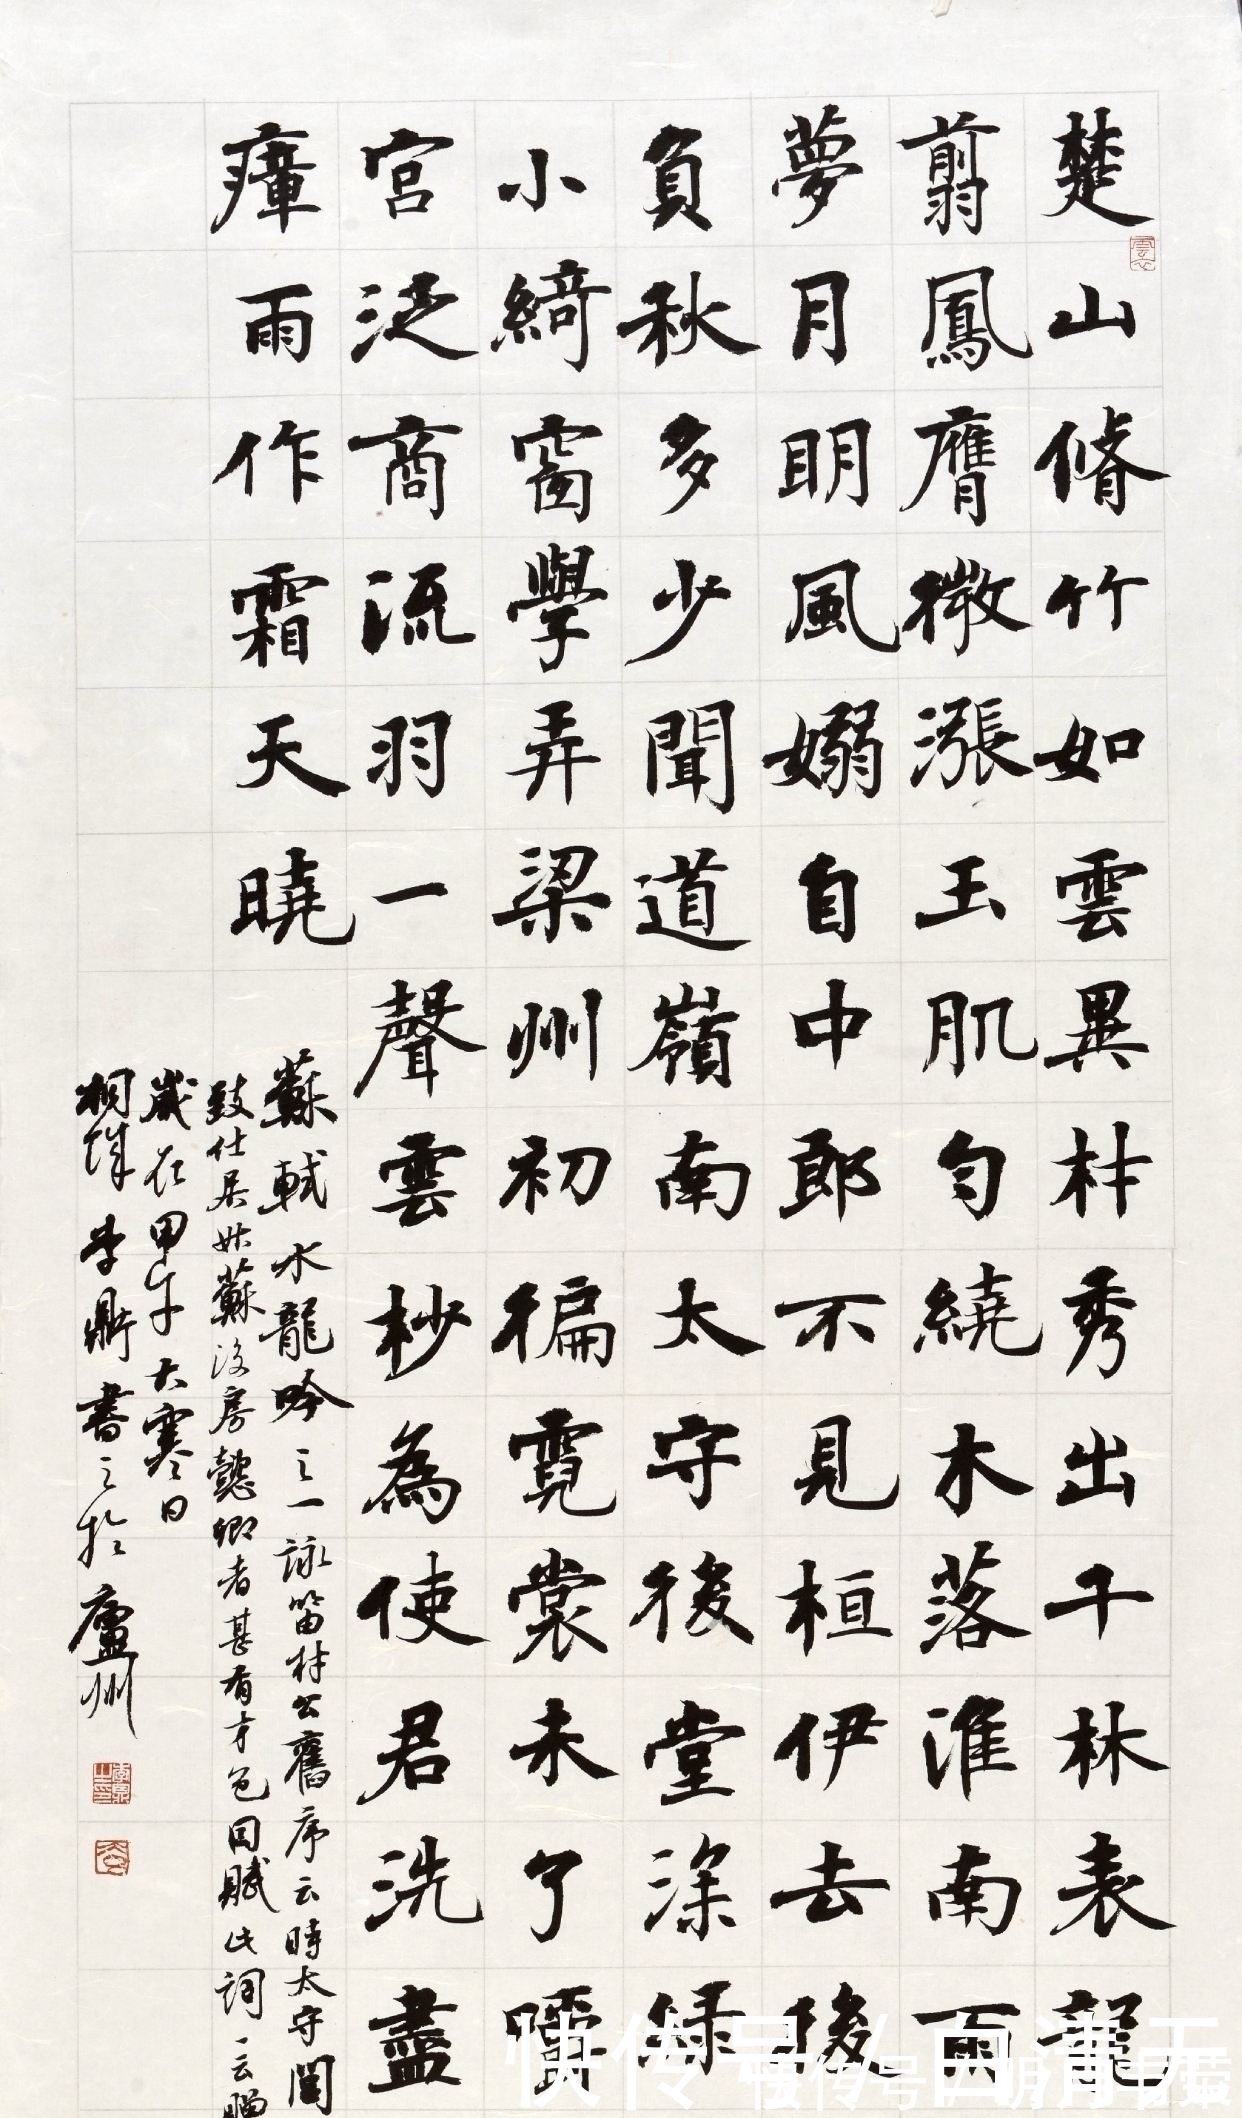 楚山修竹如雲異材秀出千林表龍
翦鳳膺微漲玉肌勻繞木落淮南雨
夢月明風嫋自中郎不見桓伊去後
負秋多少聞道嶺南太守後堂深綠
小綺窗學弄梁州初徧霓裳未了嚼
宮泛商流羽一聲雲杪為使君洗盡
瘴雨作霜天曉
蘇軾水龍吟之一詠笛材公舊序云時太守閭
致仕居姑蘇後房懿卿者甚有才色因賦此詞一云贈
歲在甲午大寒日
桐城李鼎書之於廬州
快传号/白清天